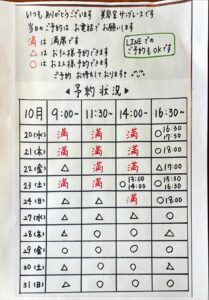 いつも ありがとうございます 美容室 サンプレースです
当日のご予約は お電話でお願いします
満 は 満席です
△ は お1人様予約できます
○ は お2人様予約できます
LINEでの
ご予約もOKです
ご予約 お待ちしております
◆予約状況◆
10月 9:00~ 11:30~ 14:00~ 16:30~
20(水) 満 満 満 ○16:30 17:30
21(木) 満 満 満 ○18:00
22(金) △ 満 満 △17:00
23(土) 満 満 ○13:00 14:00 ○15:30 16:30
24(日) △ 満 満 ○18:00
27(水) △ △ ○ ○
28(木) △ ○ ○ ○
29(金) ○ ○ ○ ○
30(土) △ ○ ○ △
31(日) △ ○ ○ ○